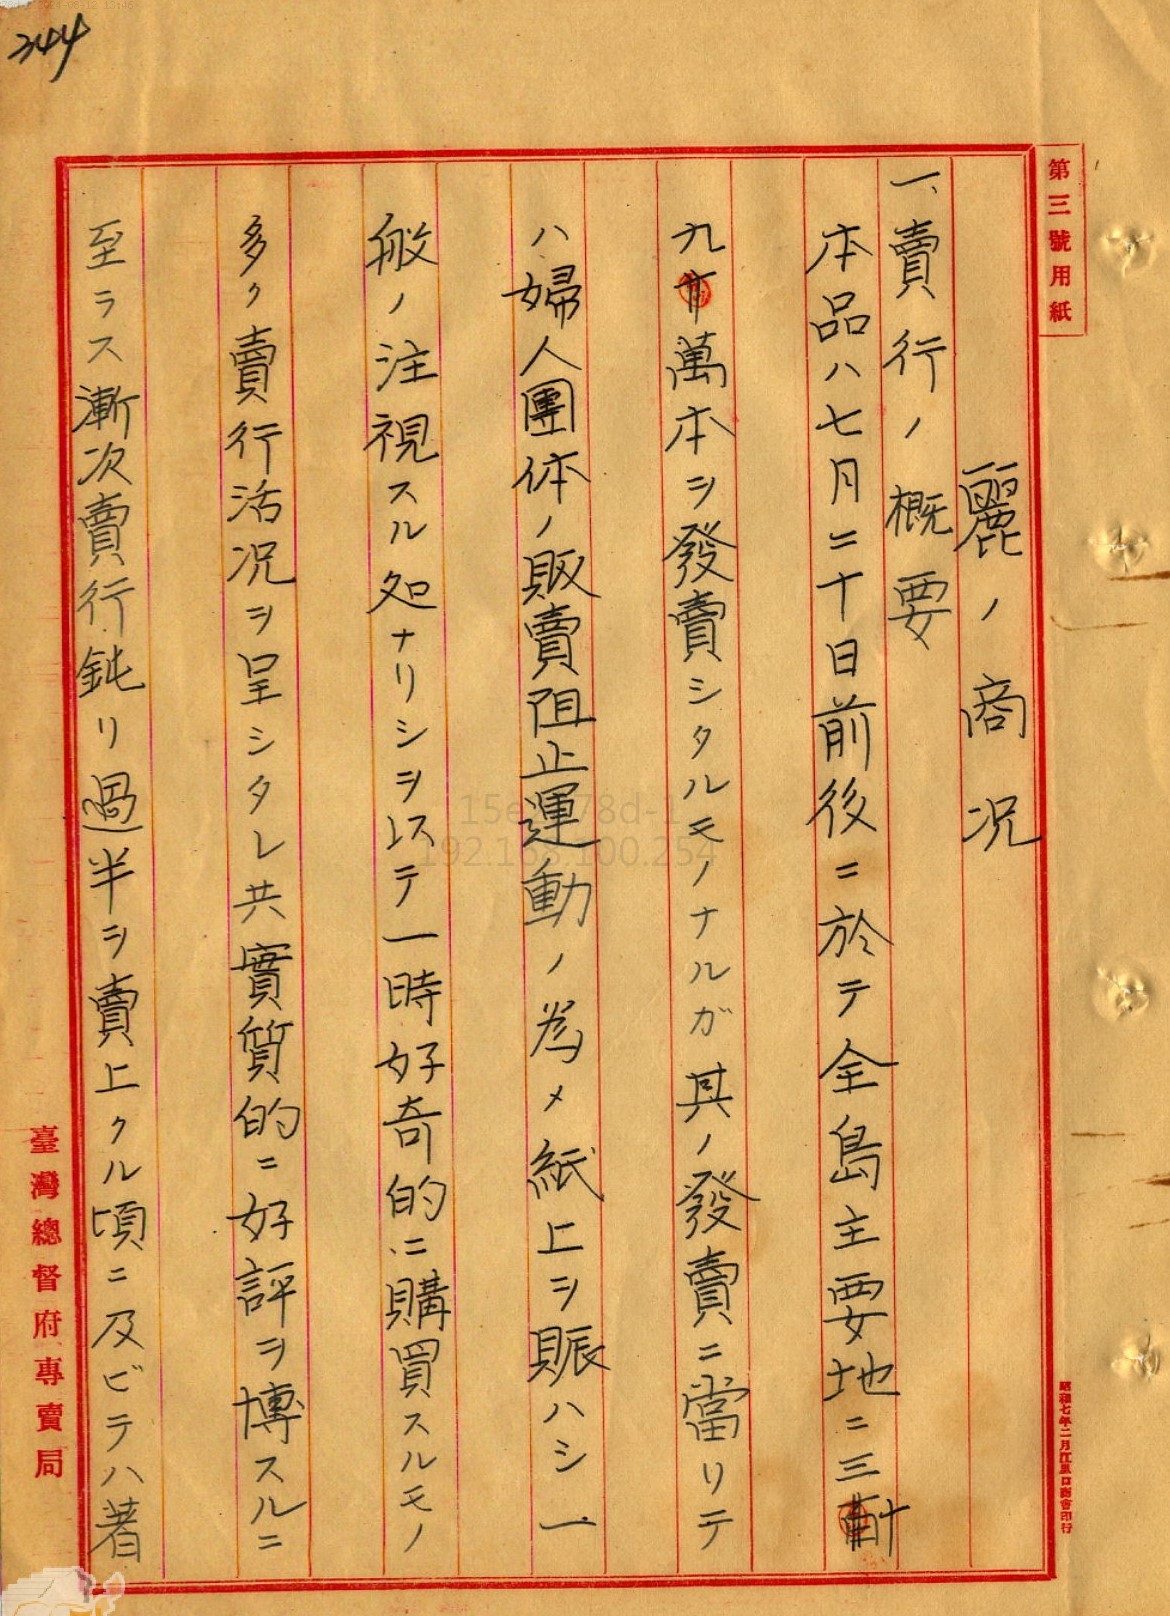 344
第三號用紙
麗ノ商況
一、賣行ノ概要
本品ハ七月二十日前後ニ於テ全島主要地ニ三
九萬本ヲ發賣シタルモノナルガ其ノ發賣ニ當リテ
ハ婦人團体ノ販賣阻止運動ノ為メ紙上ヲ賑ハシ一
般ノ注視スル処ナリシヲ以テ一時好奇的ニ購買スルモノ
多ク賣行活況ヲ呈シタレ共實質的ニ好評ヲ博スルニ
至ラス漸次賣行鈍リ過半ヲ賣上クル頃ニ及ビテハ著
臺灣總督府專賣局
昭和七年二月江里口商會印行
192.168.100.254